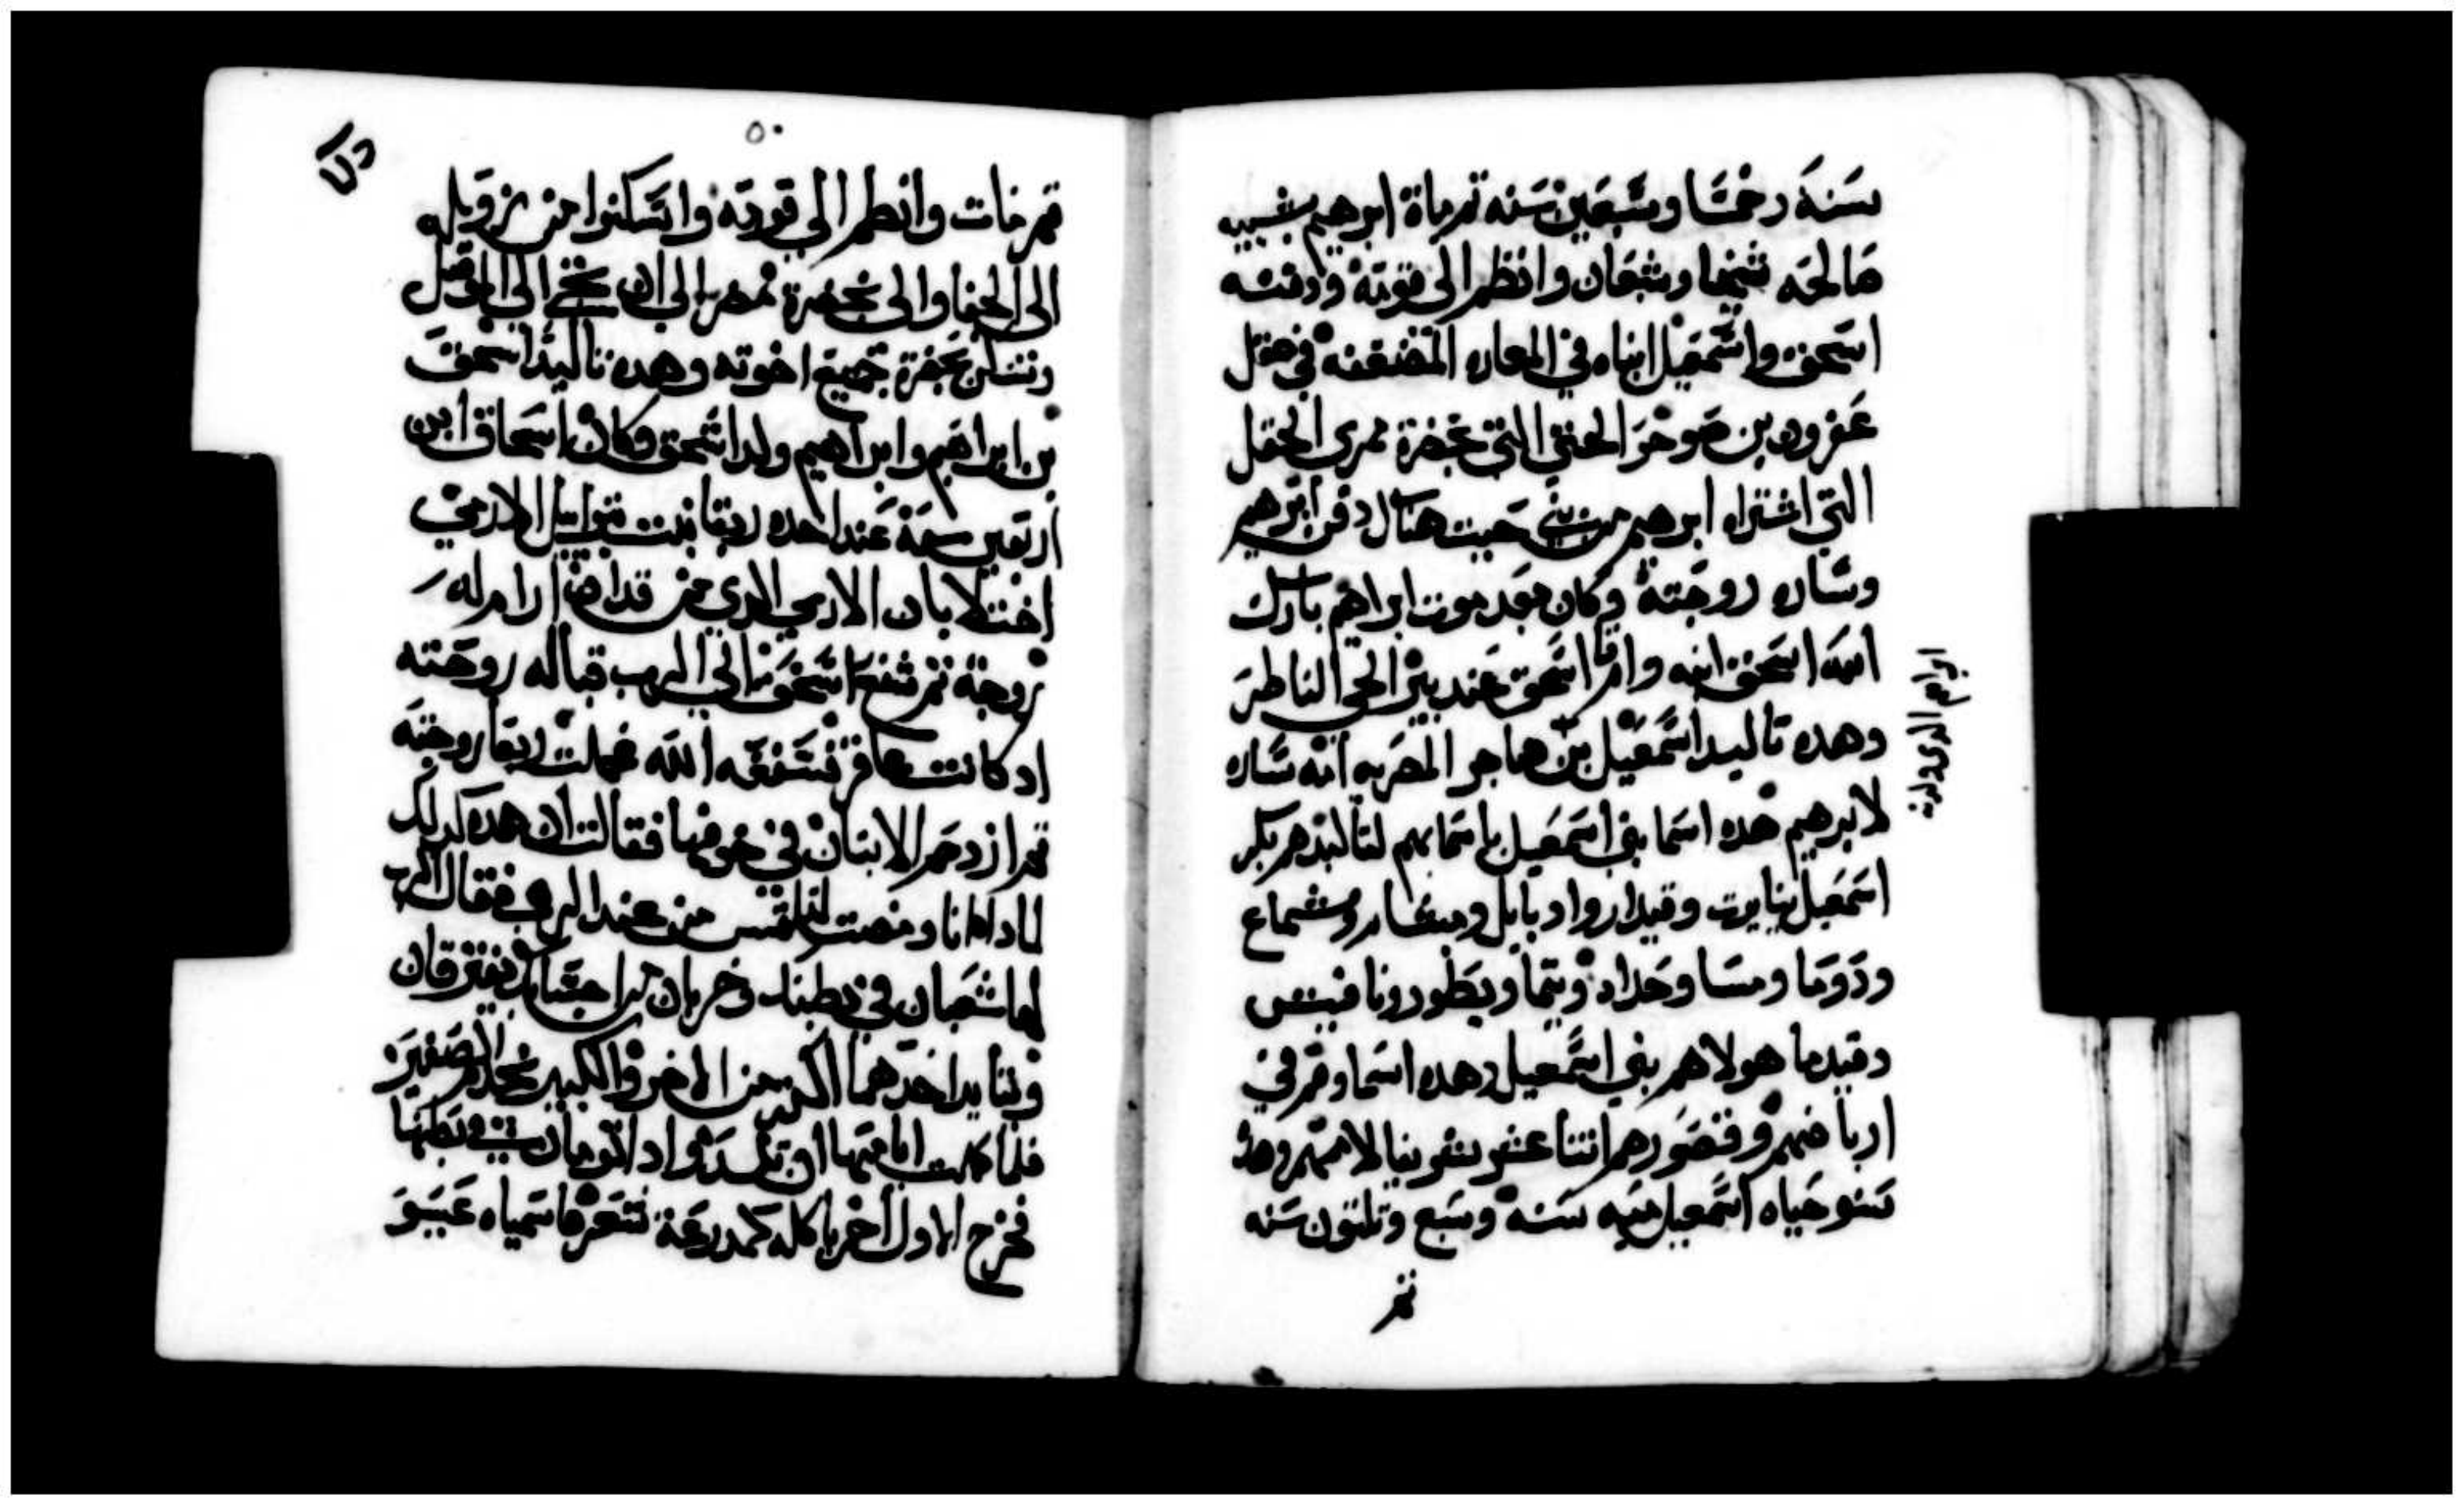 سَنهَ وخمسًا وسَبعَين سَنه تم مات ابرهيم بشيبه
صَالحَه شيخا وشبعَان وانظم الى قومَة ودفنه
اسَحق واسَمعَيل ابناه في المعاره المضعفه في حقل
عَفرون بن صَوحَر الحتي التي بحَضرة ممري الحقل
التي اشتراه ابرهيم من بني حَيت هناك دفن ابرهيم
وسَاره زوجَته وكان بعَد موت ابراهيم بارك
اللهَ اسَحق ابنه واقام اسَحق عَند بير الحي الناظر
وهده تاليد اسَمعَيل بن هاجر المصَريه امَة سَاره
لابرهيم هده اسَما بني اسَمعَيل باسَمايهم لتاليدهم بكر
اسَمعَيل نبايوت وقيدار وادبايل ومبسَام ومشماع
ودَومَا ومسَا وحَداد وتيمَا ويطَور ونافيس
وقيدما هولاهم بني اسَمعَيل وهده اسَماوهم في
ارباضهم وقصَورهم اتنا عَشر شريفا لاممَهم وهده
سَنو حَياه اسَمعَيل ميَه سَنه وسَبع وتلتون سَنه
تم
ابراهيم الدي ولدة
٥٠
تم مات وانظم الي قومَه واسَكنوا من زويله
الى الحنفا والى بحضرة مصر الي ان تجي الي الموصَل
وتسكن بحَضرة جميع اخوته وهده تاليد اسَحق
بن ابراهيم وابراهيم ولد اسَحق وكان اسَحاق ابن
اربعَين سنة عَند اخده ربقا بنت بتوايل الارمي
اخت لابان الارمي الدي من فدان ارام له
زوجة تم شفعَ اسَحق الي الرب قباله زوجَته
اد كانت عاقر فشَفعَه اللهَ فحملت ربقا زوجَته
تم ازدحَم الابنان في جوفها فقالت ان هده كدلك
لمادا انا ومضت لتلتمس من عند الرب فقال الرب
لها شعَبان في بطنك وحزبان من احشايك يفترقان
ويتايد احَدهما اكتر من الاخر والكبير يخَدم الصَغير
فلما كملت ايامَها ان تلد واد التومان في بطنها
فخرج الاول احَمر كله كمدرعَة شعَر فاسَمياه عَيسَو